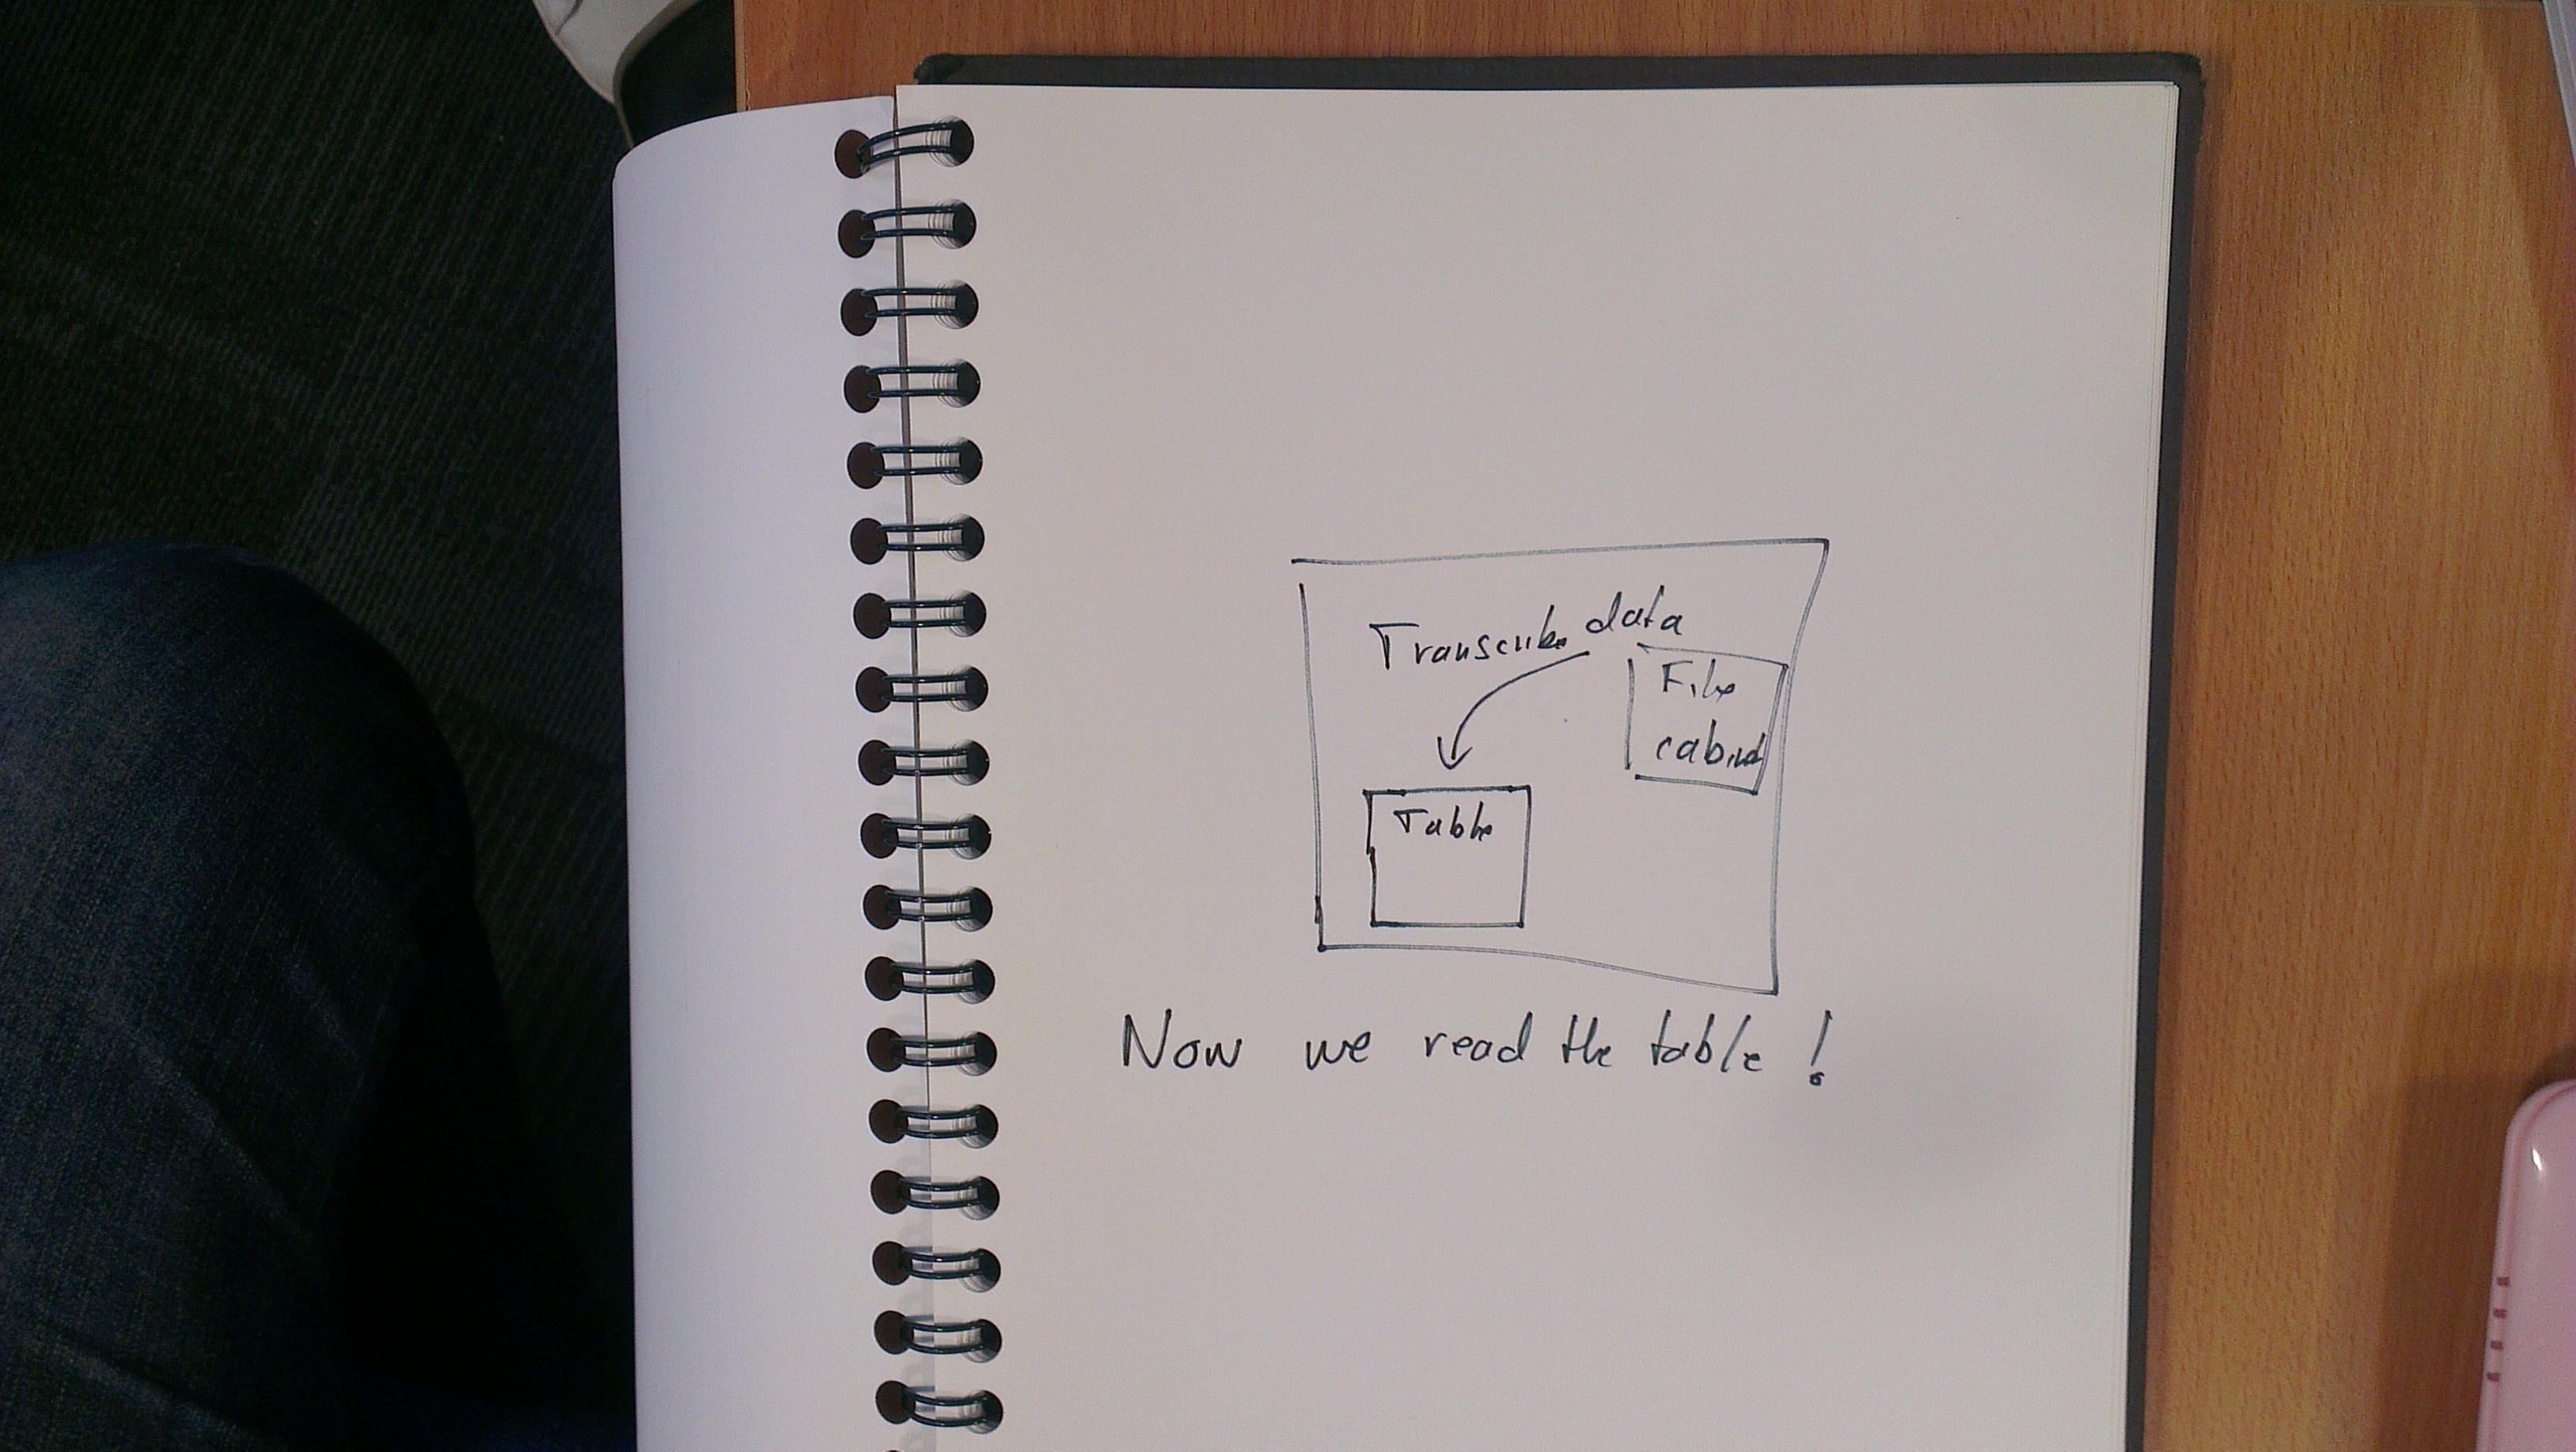 Transcribe data
File
cabinet
Table
Now we read the table!